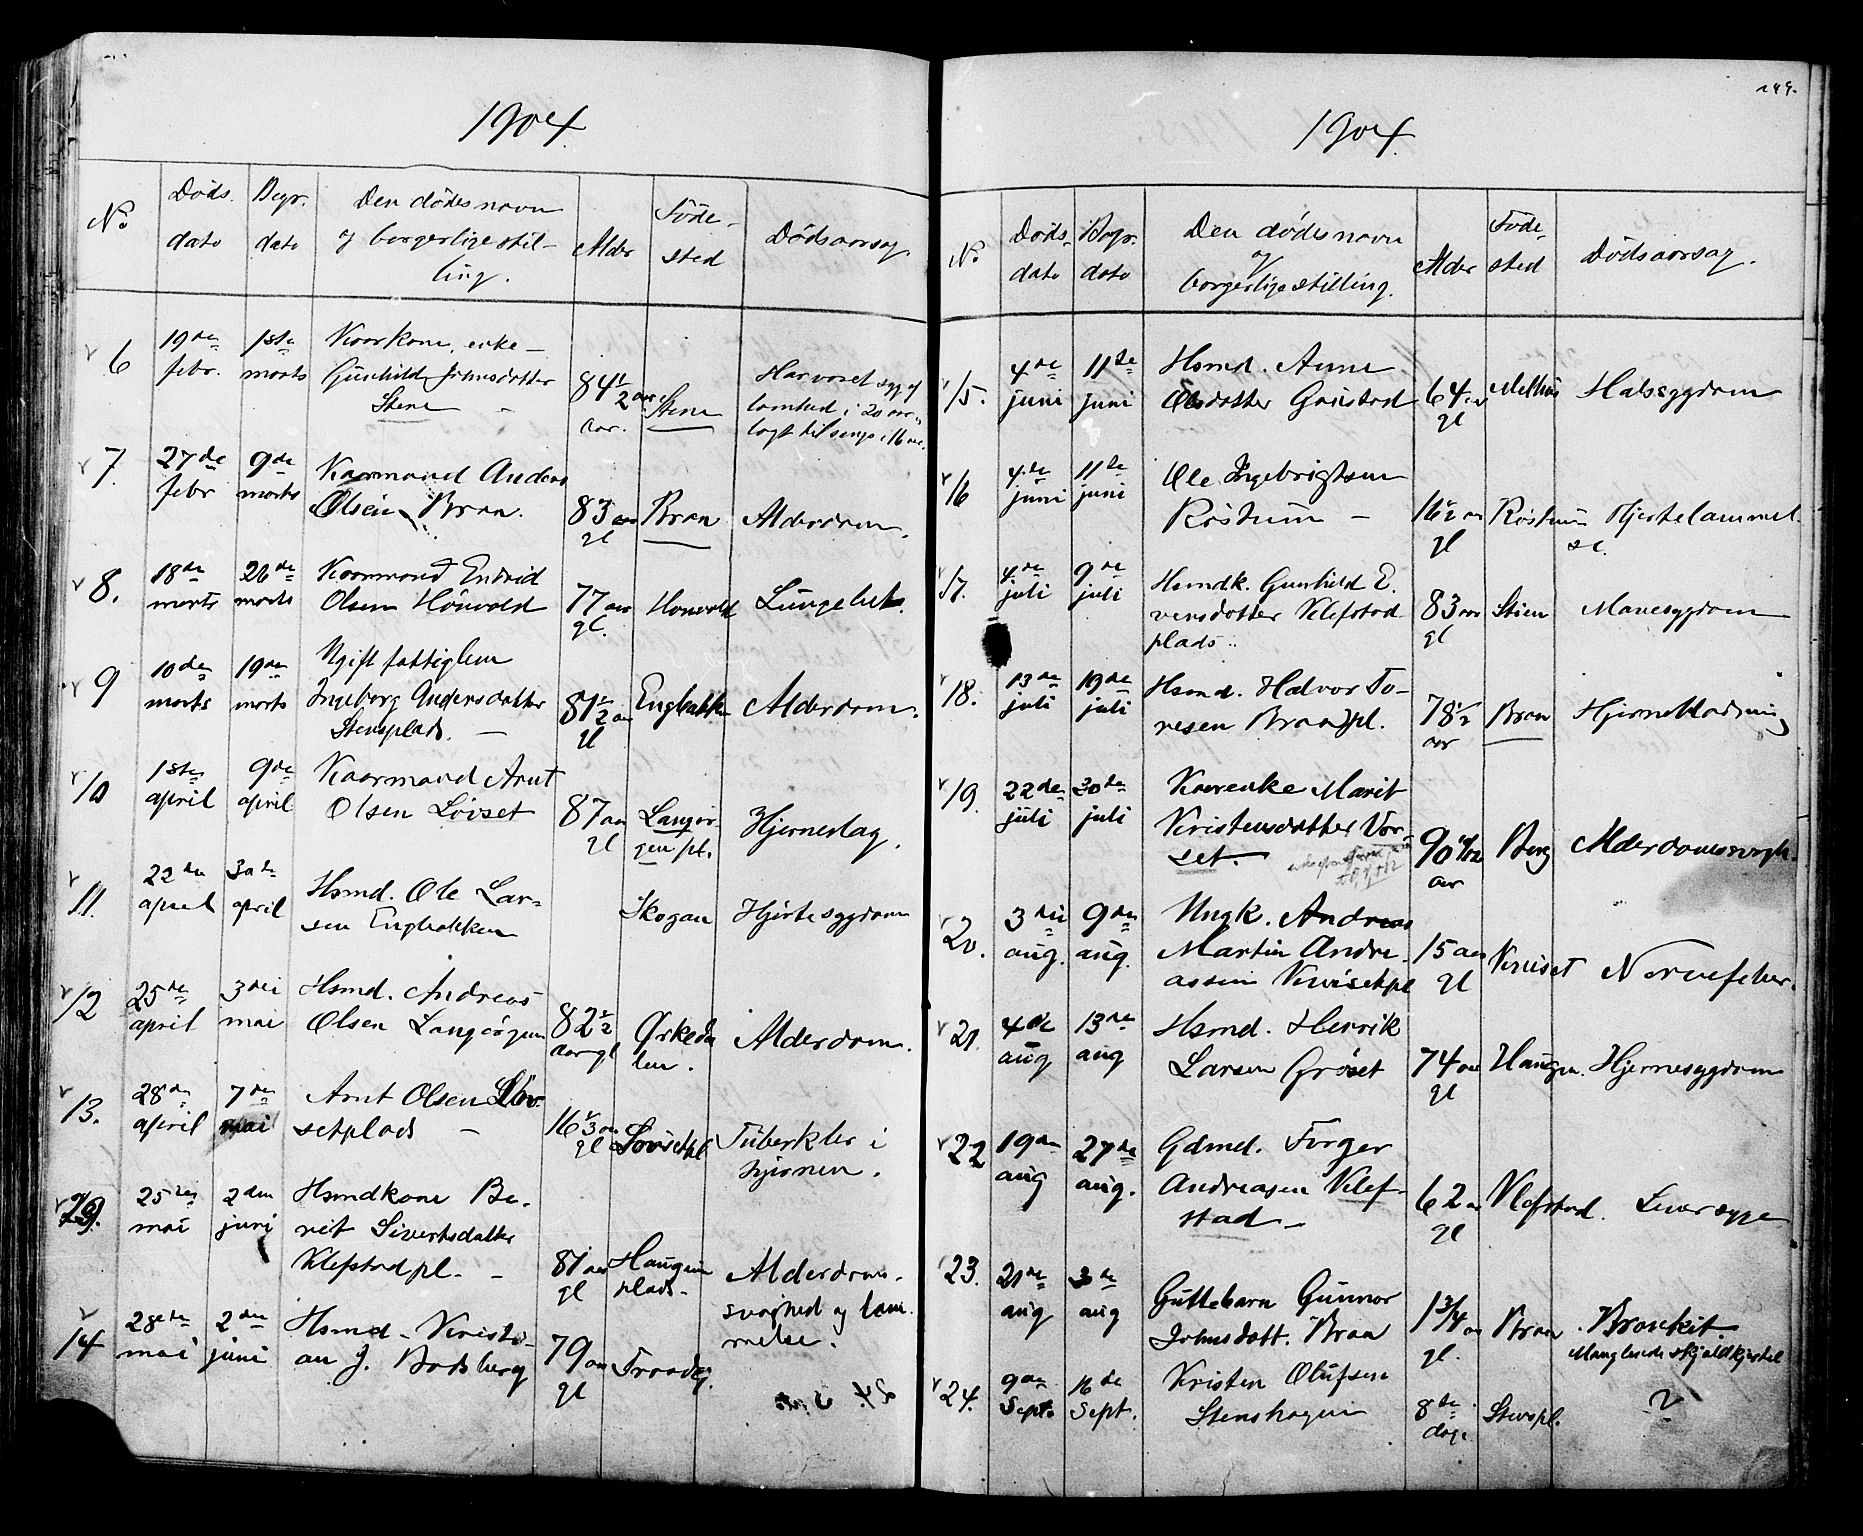 1904
No
Døds.
dato
Begr.
dato
Den dødes navn
og borgerlige stil-
ling.
Alder
Føde-
sted
Dødsaarsag.
6
19de
febr.
1ste
marts
Kaarkone, enke-
Gunhild Johnsdatter
Stene
84 1/2 aar.
aar.
Stene
Har været syg af
lamhed i 20 aar,
lagt til sengs i 16 aar.
7.
27de
febr
9de
marts
Kaarmand Anders
Olsen Braa.
83 aar
gl
Braa
Alderdom.
8.
18de
marts
26de
marts
Kaarmand Endrid
Olsen Honvold
77 aar
gl.
Honvold
Lungebet.
9
10de
marts
19de
marts
Ugift fattiglem
Ingeborg Andersdatter
Stensplads.
81 1/2 aar
gl
Engbakken
Alderdom.
10
1ste
april
9de
april
Kaarmand Arnt
Olsen Lövset
87 aar
gl
Langør-
gen pl.
Hjerneslag.
11.
22de
april
30te
april
Hsmd. Ole Lar-
sen Engbakken
Skogan
Hjertesygdom
12
25de
april
3die
mai
Hsmd. Andreas
Olsen Langörgen
82 1/2
aar gl
Ørkeda
len.
Alderdom.
13.
28de
april
7de
mai
Arnt Olsen Löv-
setplads
16 1/3 aar
gl
Lövsetpl
Tuberkler i
hjernen.
25de
mai
2den
juni
Hsmdkone Be-
reit Sivertsdatter
Klefstadpl.
81 aar
gl
Haugen
plads.
Alderdoms-
svaghed og lam-
melse.
14
28de
mai
2den
juni
Hsmd. Kristi-
an J. Bodsberg
79 aar
gl
199.
1904.
No.
Døds-
dato
Begr.
dato
Den dødes navn
og
borgerlige stilling.
Alder
Føde-
sted
Dødsaarsag.
15.
4de
juni
11te
juni
Hsmd. Anne
Olsdatter Gaustad
64 aar
gl
Melhus
Halssygdom
16
4de
juni
11te
juni
Ole Ingebrigtsen
Röstum
16 1/2 aar
gl
Röstum
Hjertelammel-
se.
17.
4de
juli
9de
juli
Hsmdk. Gunhild E-
vensdatter Klefstad
plads.
83 aar
gl
Stien
Mavesygdom
18.
13de
juli
19de
juli
Hsmd. Halvor To-
resen Braapl.
78 1/2
aar
Braa
19.
22de
juli
30de
juli
Kaarenke Marit
Kristensdatter Vor-
set.
90
aar
Berg
Alderdomssvagh.
20.
3die
aug.
9de
aug.
Ungk. Andreas
Martin Andre-
assen Kvisetpl
15 aar
gl
Kviset
Nervefeber.
21.
4de
aug
13de
aug
Hsmd. Henrik
Larsen Gröset
74 aar
gl
Haugen.
Hjernesygdom
22
19de
aug
27de
aug.
Gdmd. Torger
Andreasen Klef-
stad
62 aar
gl
Klefstad.
Leversyge
23.
21de
aug
3de
aug
Guttebarn Gunnar
Johnsdatt. Braa
1 3/4 aar
gl.
Braa
Bronkit.
Manglende skjoldkjertel
24.
9de
Sept.
16de
Sept.
Kristen Olufsen
Stenshagen
8te
dage
Stenspl.
?